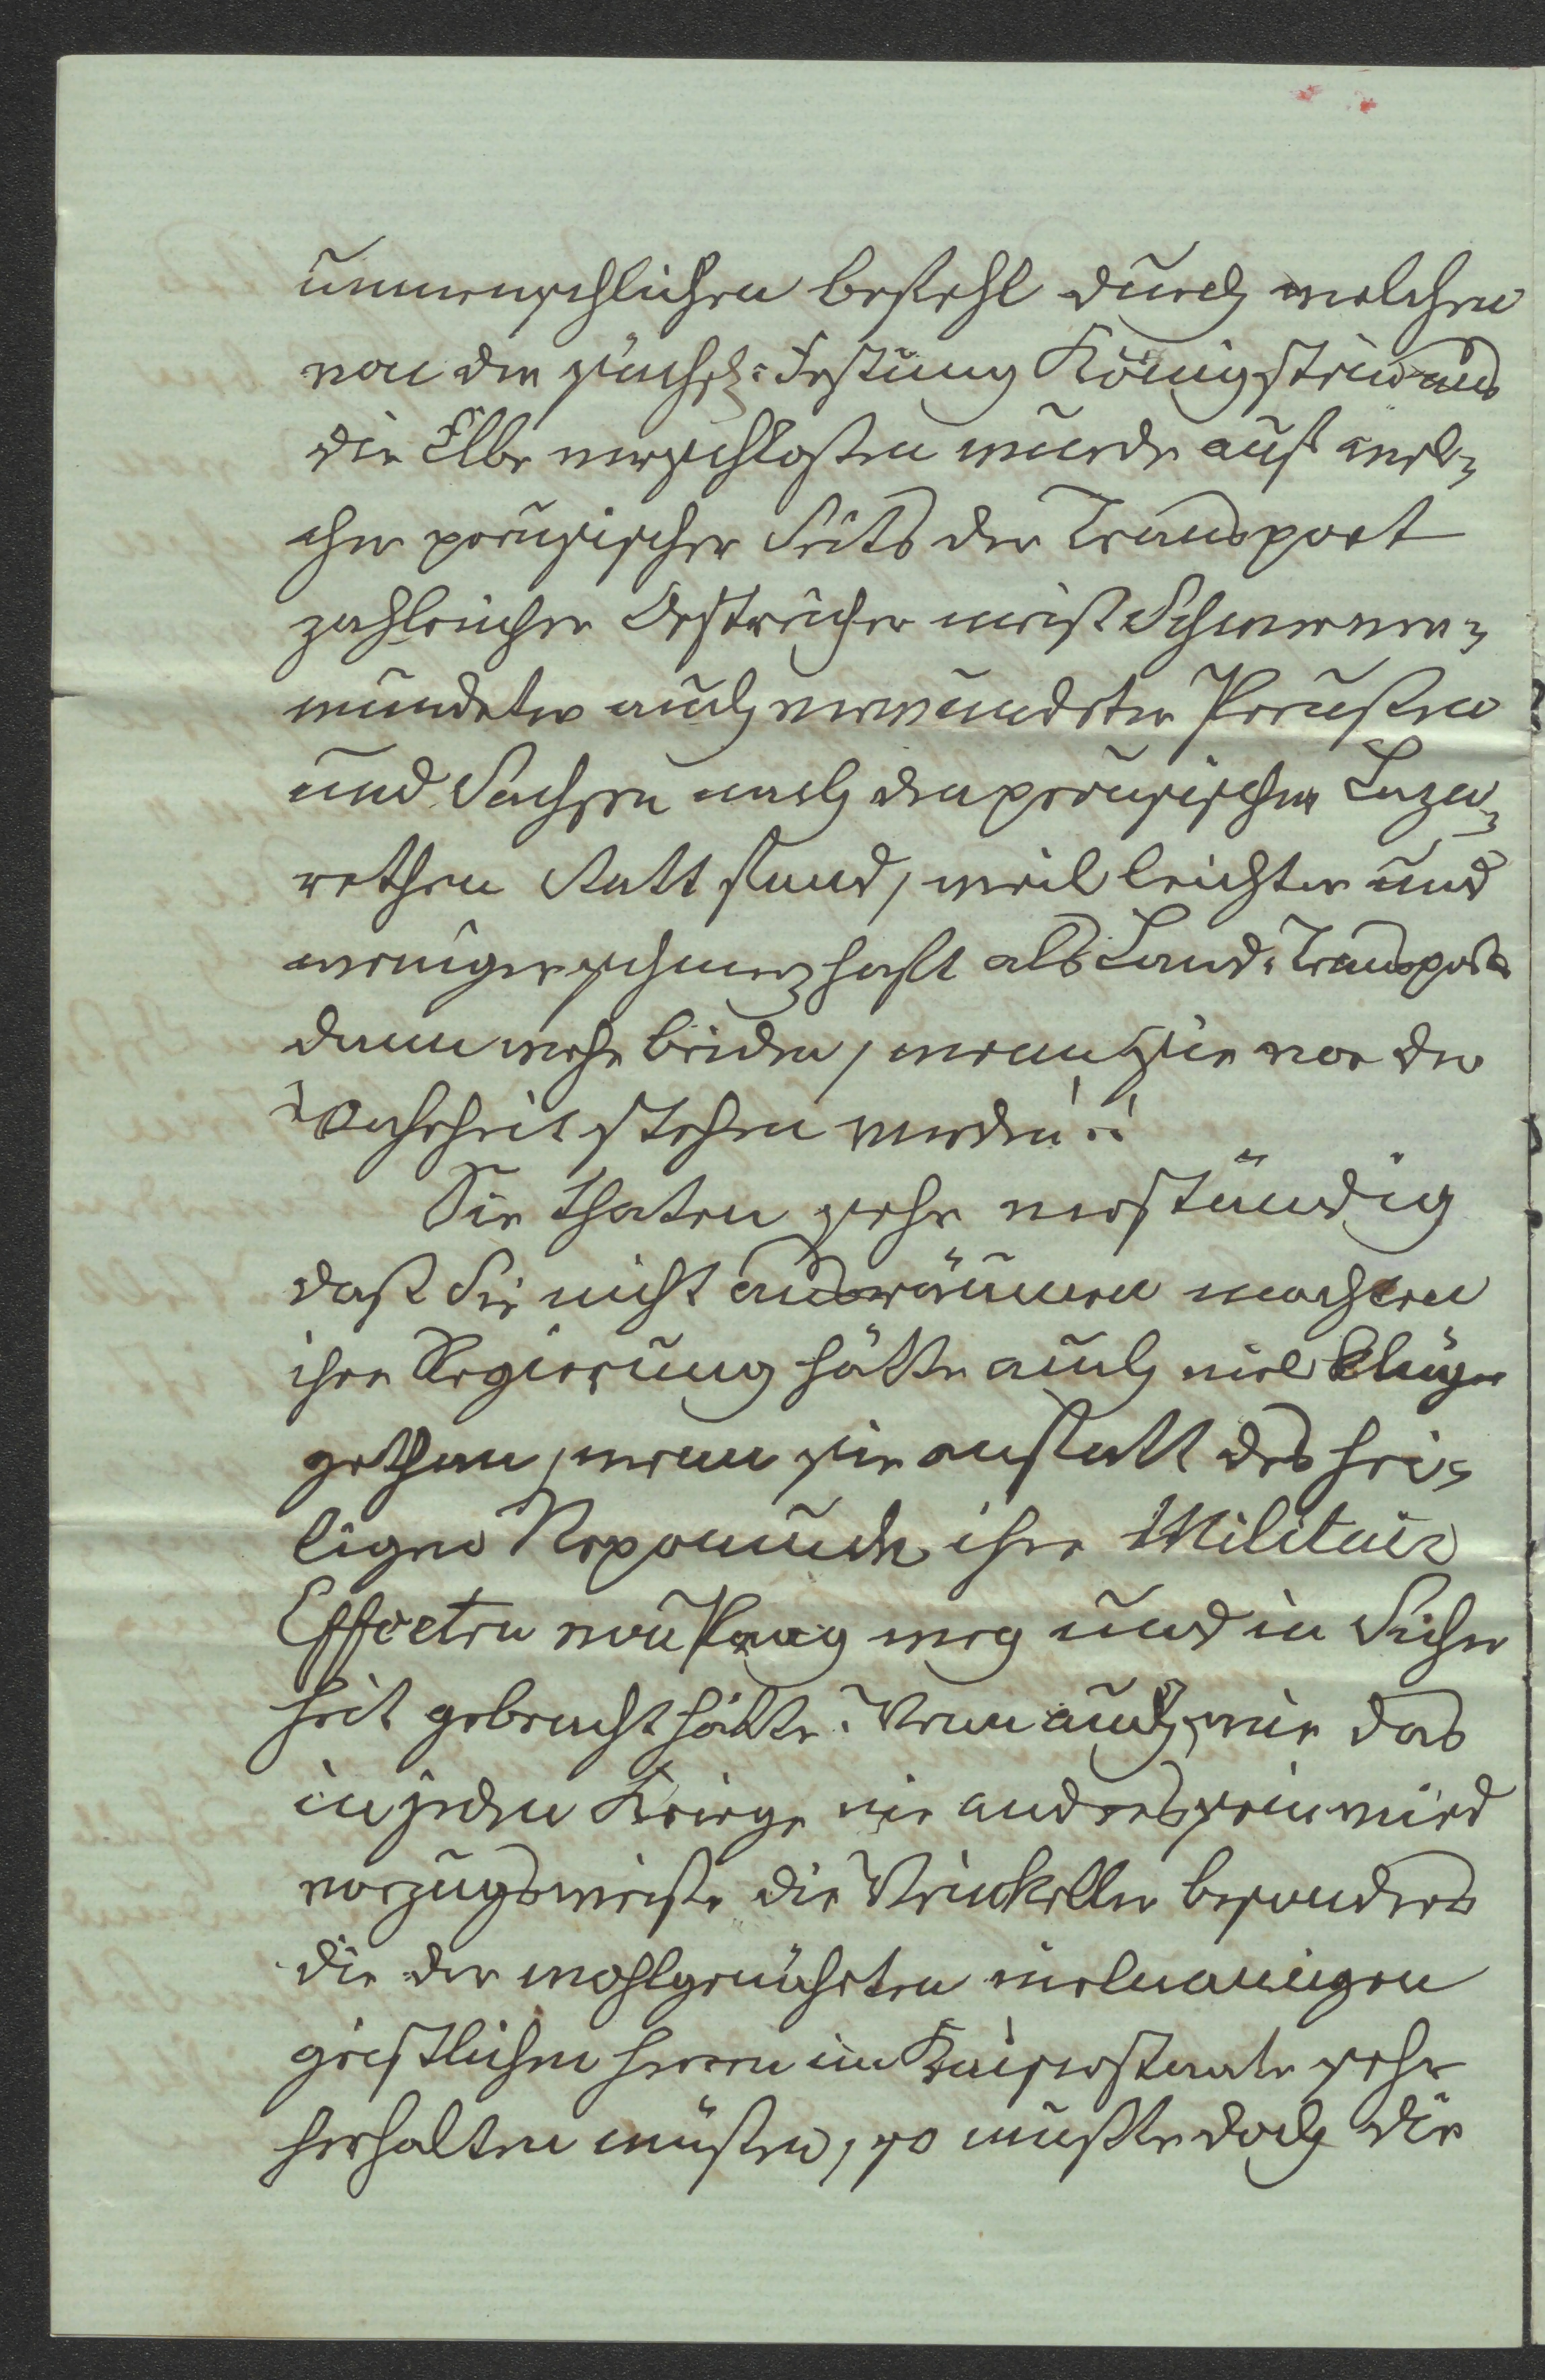 unmenschlichen befehl durch welchen
von der sächs: Festung Königstein aus
die Elbe verschloßen wurde auf wel-
cher preusischer Seits der Transport
zahlreicher Oestreicher meist Schwerver-
wundeter auch verwundeter Preußen
und Sachsen nach den preusischen Laza-
rethen Statt fand, weil leichter und
weniger schmerzhaft als Land-Transport
dann wehe beiden, wenn sie vor der
Wahrheit stehen werden!!
Sie thaten sehr verständig
daß Sie nicht ausräumen machten
ihre Regierung hätte auch viel klüger
gethan, wenn sie anstatt des hei-
ligen Nepomuck ihre Militair
Effecten von Prag weg und in Sicher
heit gebracht hätte. Wenn auch, wie das
in jedem Kriege nie anders sein wird
vorzugsweise die Weinkeller besonders
die der wohlgenährten
geistlichen Herren im Kaiserstaate sehr
herhalten müßen, so mußte doch die